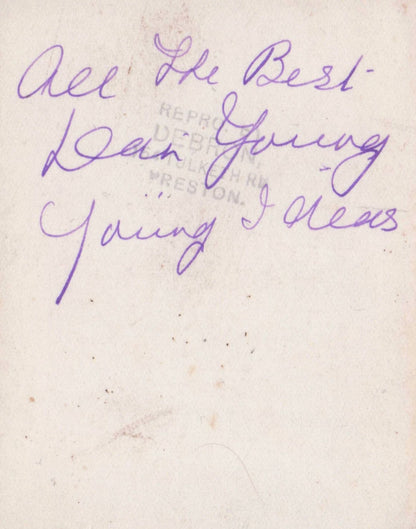 All The Best
Dan Young
Young Ideas
REPRO. BY
DEBRON,
PRESTON.